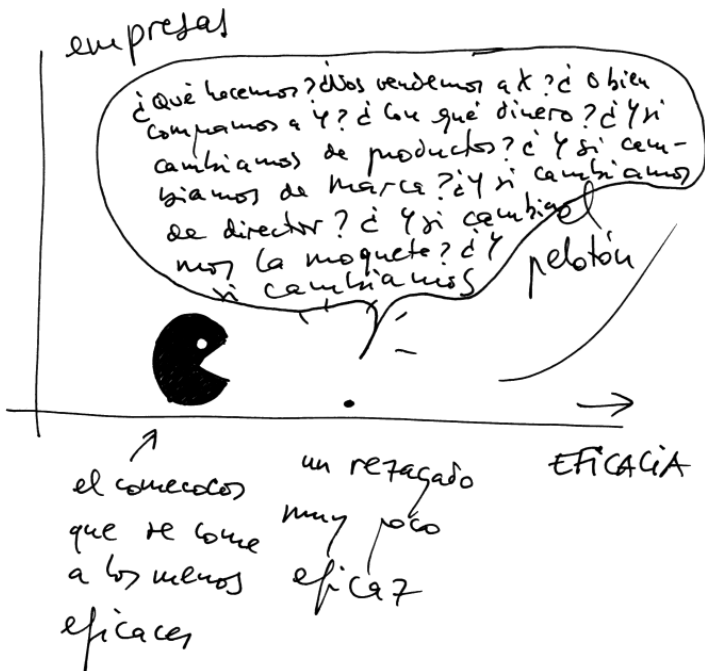 empresas
¿Qué hacemos? ¿Nos vendemos a X? ¿O bien
compramos a Y? ¿Con qué dinero? ¿Y si
cambiamos de productos? ¿Y si cam-
biamos de marca? ¿Y si cambiamos
de director? ¿Y si cambia-
mos la moqueta? ¿Y
si cambiamos
el
pelotón
EFICACIA
el comecocos
que se come
a los menos
eficaces
un rezagado
muy poco
eficaz